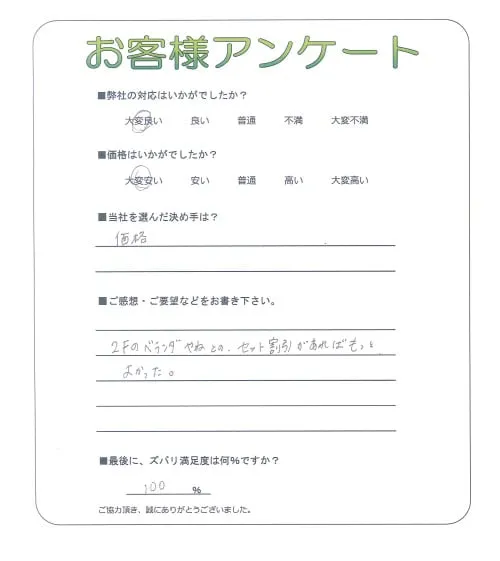 お客様アンケート
■弊社の対応はいかがでしたか？
大変良い 良い 普通 不満 大変不満
■価格はいかがでしたか？
大変安い 安い 普通 高い 大変高い
■当社を選んだ決め手は？
価格
■ご感想・ご要望などをお書き下さい。
2Fのベランダやねとの、セット割引があればもっと
よかった。
■最後に、ズバリ満足度は何%ですか？
100 %
ご協力頂き、誠にありがとうございました。